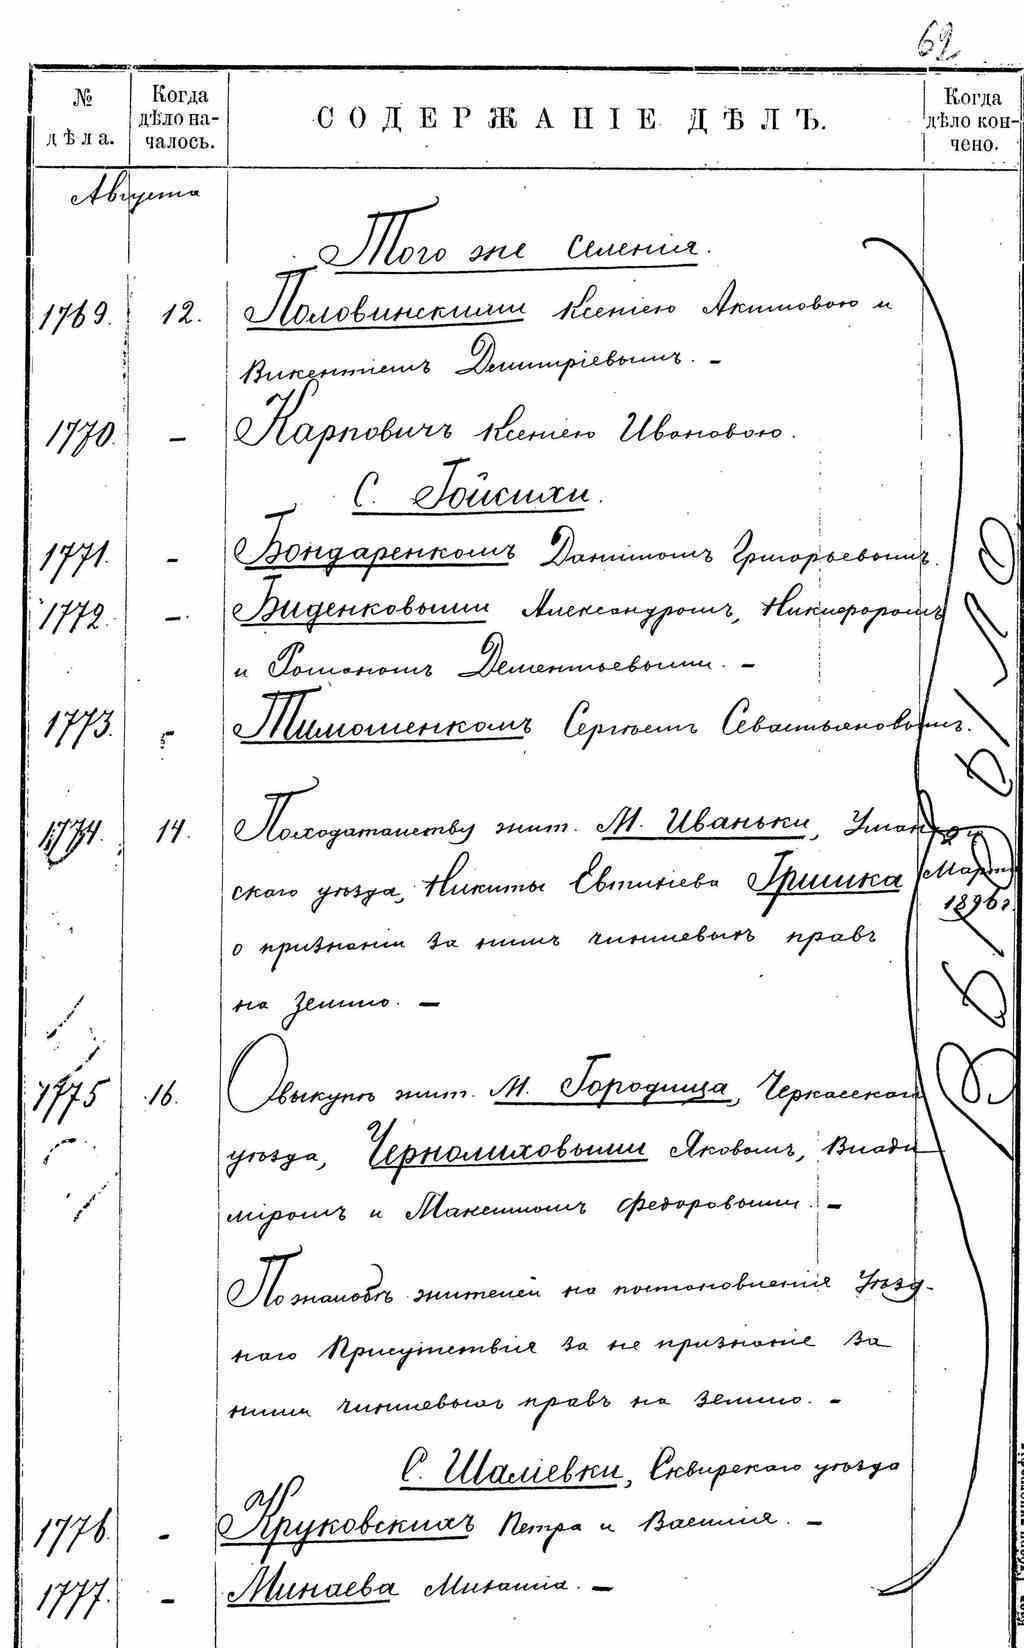 62
№ дѣла.
Когда дѣло на-
чалось.
СОДЕРЖАНІЕ ДѢЛЪ.
Когда дѣло кон-
чено.
Августа
Того же селенія.
1769. 12. Половинскими Ксеніею Акимовою и
Викентіемъ Дмитріевымъ. —
1770. — Карповичъ Ксеніею Ивановою.
С. Гойсихи.
1771. — Бондаренкомъ Даниломъ Григорьевымъ.
1772. — Биденковыми Александромъ, Никифоромъ
и Романомъ Дементьевыми. —
1773. — Тимошенкомъ Сергѣемъ Севастьяновымъ.
1774. 14. По ходатайству жит. М. Иваньки, Уман-
скаго уѣзда, Никиты Евтихіева Гришка
Марта
1896 г.
о признаніи за нимъ чиншевыхъ правъ
на землю. —
1775 16. О выкупѣ жит. М. Городища, Черкасскаго
уѣзда, Чернолиховыми Яковомъ, Влади
міромъ и Максимомъ Федоровыми. —
По жалобѣ жителей на постановленія Уѣзд-
наго Присутствія за не признаніе за
ними чиншевыхъ правъ на землю. —
С. Шаліевки, Сквирскаго уѣзда
1776. — Круковскихъ Петра и Василія. —
1777. — Минаева Михаила. —
ВЫБЫЛО